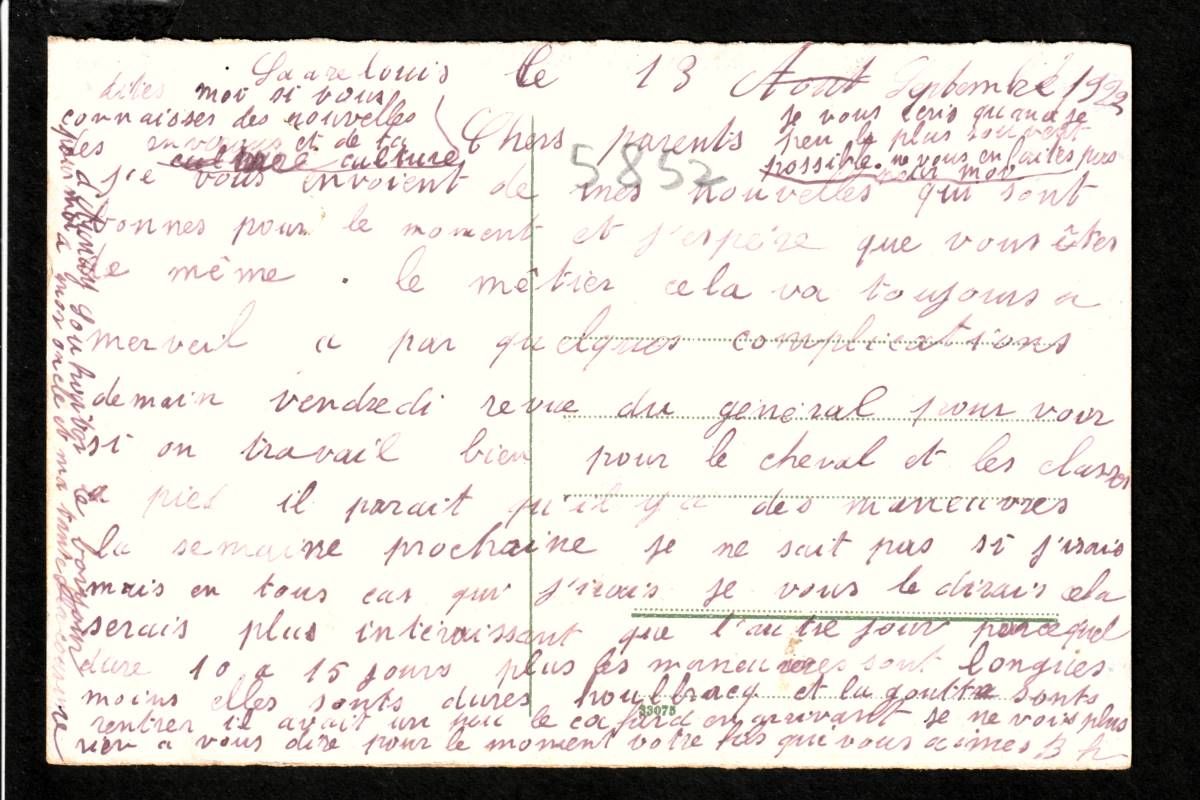 Saarelouis le 13 Août Septembre 1922
Chers parents
5852
Je vous envoient de mes nouvelles qui sont
bonnes pour le moment et j'espére que vous êtes
de même . le métier cela va toujours a
merveil a par quelques complications
demain vendredi revue du général pour voir
si on travail bien pour le cheval et les classes
a pied il parait qu'il y a des maneuvres
la semaine prochaine je ne sait pas si j'irais
mais en tous cas qui j'irais je vous le dirais cela
serais plus intéraissant que l'autre jour parcequel
dure 10 a 15 jours plus les maneuvres sont longues
moins elles sonts dures et la goutte sonts
rentrer il avait un peu le cafard en arrivant je ne vois plus
rien a vous dire pour le moment votre fils qui vous aimes
33075
dites moi si vous
connaisses des nouvelles
des et de ta
culture culture
je vous ecris quand je
peu le plus souvent
possible. ne vous en faites pas
pour moi
le bonjour
pour moi a mon oncle et ma tante et la cousine